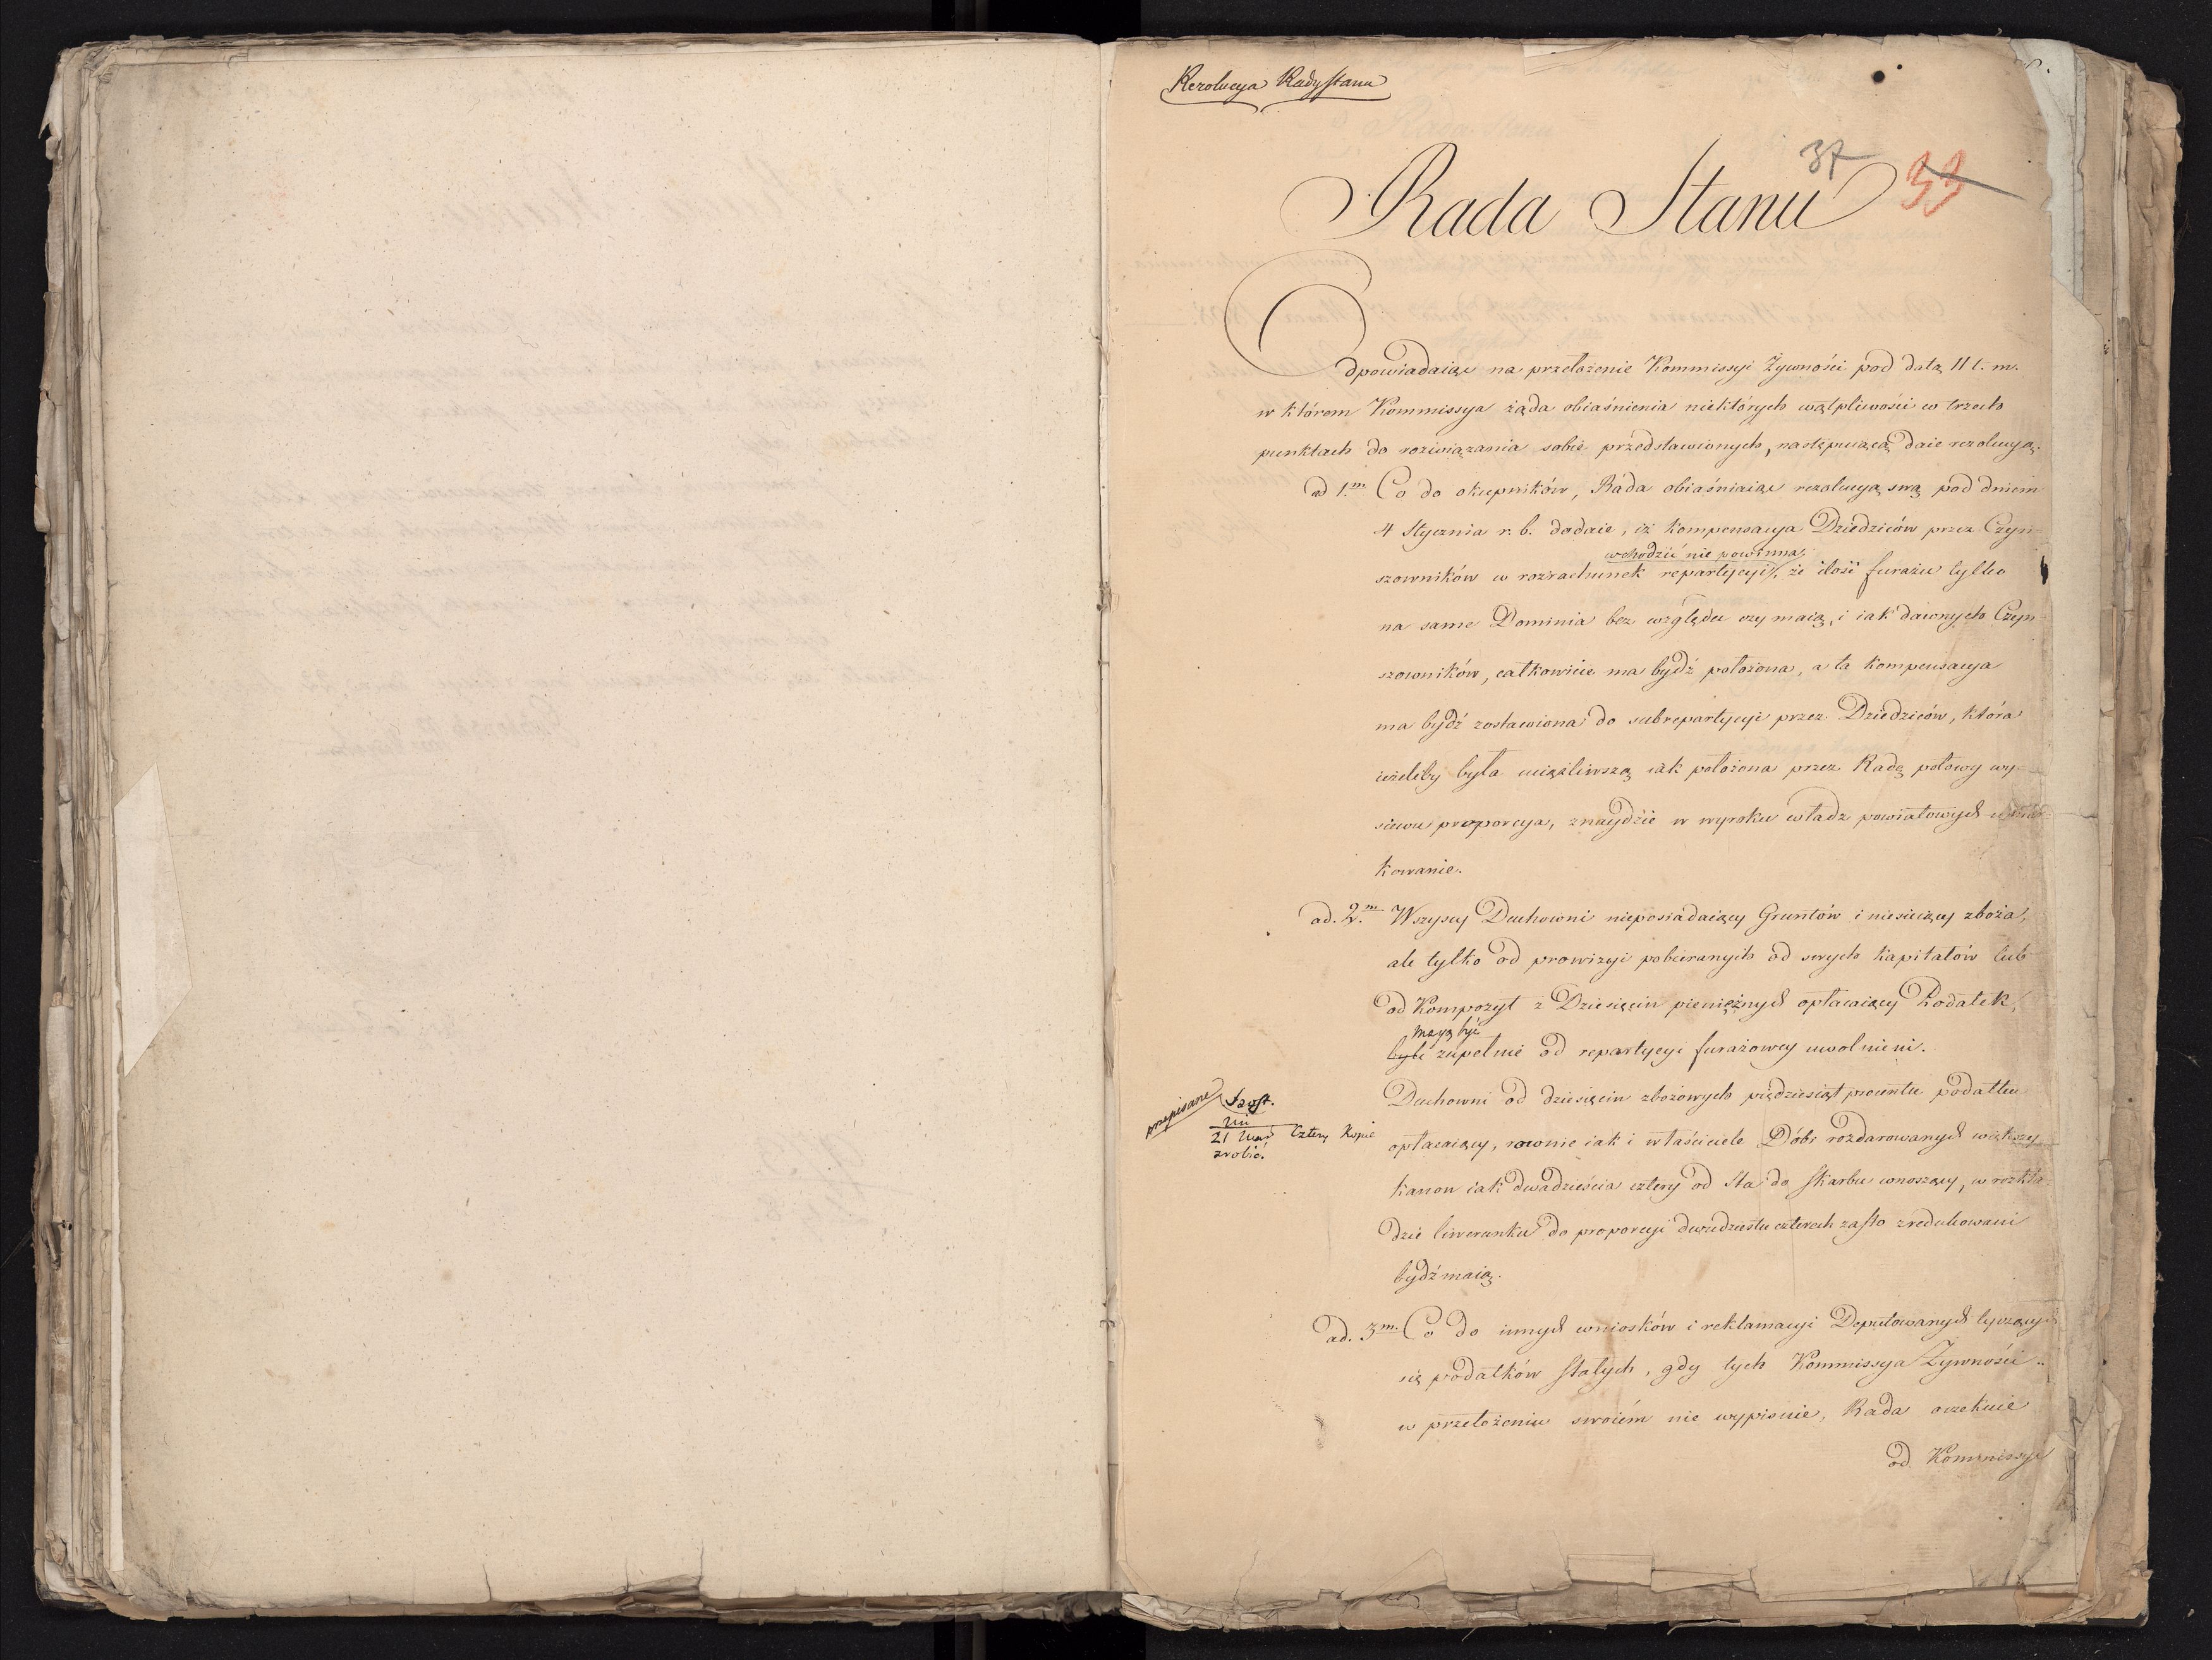 Rezolucya Rady Stanu
37 33
Rada Stanu
Odpowiadaiąc na przełożenie Kommissyi Żywności pod datą 11 t. m.
w którem Kommissya żąda obiaśnienia niektórych wątpliwości w trzech
punktach do rozwiązania sobie przedstawionych, następuiącą daie rezolucyą.
ad 1.m Co do okupników, Rada obiaśniaiąc rezolucyą swą pod dniem
4 Stycznia r. b. dodaie, iż kompensacya Dziedziców przez Czyn-
wchodzić nie powinna,
szowników w rozrachunek repartycyi, że ilość furażu tylko
na same Dominia bez względu czy maią, i iak dawnych Czyn-
szowników, całkowicie ma bydź położona, a ta kompensacya
ma bydź zostawiona do subrepartycyi przez Dziedziców, która
ieżeliby była uciążliwszą iak położona przez Radę połowy wy-
siewu proporcya, znaydzie w wyroku władz powiatowych
kowanie.
ad. 2.m Wszyscy Duchowni nieposiadaiący Gruntów i niesieiący zboża,
ale tylko od prowizyi pobieranych od swych kapitałów lub
od Kompozyt z Dziesięcin pieniężnych opłacaiący Podatek,
maią być
byli zupełnie od repartycyi furażowey uwolnieni.
Duchowni od dziesięcin zbożowych piędziesiąt procentu podatku
przepisane
21 Cztery Kopie
zrobić.
opłacaiący, rownie iak i właściciele Dóbr rozdarowanych większy
kanon iak dwadzieścia cztery od sta do skarbu wnoszący, w rozkła-
dzie liwerunku do proporcyi dwudziestu czterech za sto zredukowani
bydź maią.
ad. 3m. Co do innych wniosków i reklamacyi Deputowanych tyczących
się podatków stałych, gdy tych Kommissya Żywności
w przełożeniu swoiém nie wypisuie, Rada oczekuie
od Kommissyi